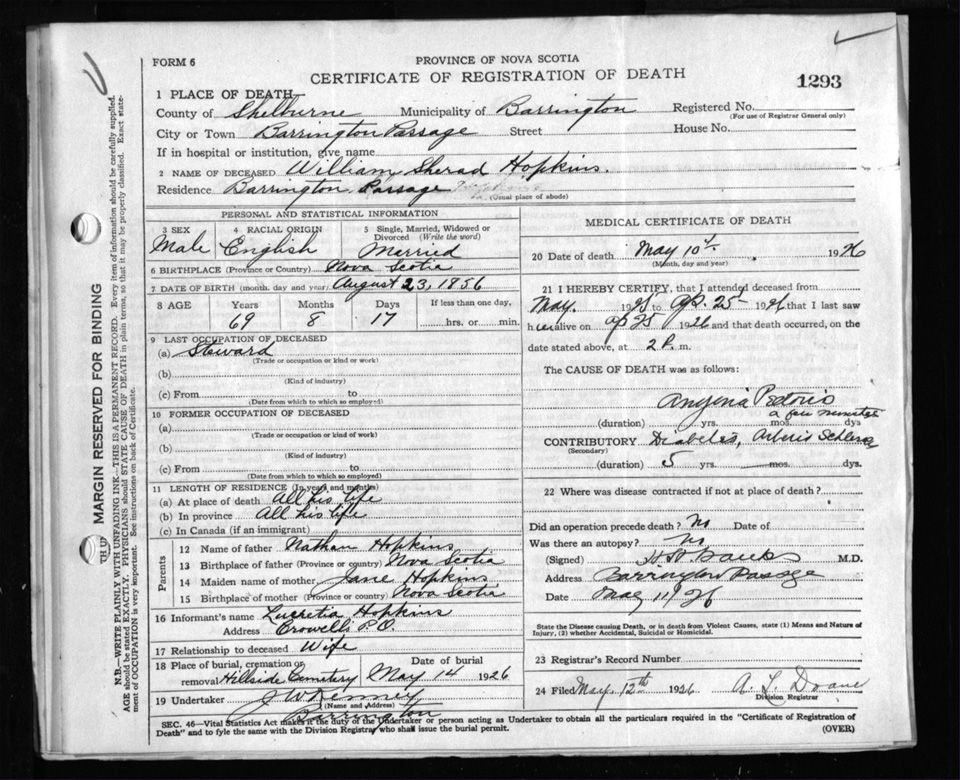 FORM 6
PROVINCE OF NOVA SCOTIA
CERTIFICATE OF REGISTRATION OF DEATH
1293
1 PLACE OF DEATH
County of Shelburne Municipality of Barrington Registered No.
(For use of Registrar General only)
City or Town Barrington Passage Street House No.
If in hospital or institution, give name
2 NAME OF DECEASED William Sherad Hopkins.
Residence Barrington Passage
(Usual place of abode)
PERSONAL AND STATISTICAL INFORMATION
3 SEX 4 RACIAL ORIGIN 5 Single, Married, Widowed or
Divorced (Write the word)
Male English Married
6 BIRTHPLACE (Province or Country) Nova Scotia
7 DATE OF BIRTH (month, day and year) August 23, 1856
8 AGE Years Months Days If less than one day,
69 8 17 hrs. or min.
9 LAST OCCUPATION OF DECEASED
(a) Steward
(Trade or occupation or kind or work)
(b)
(Kind of industry)
(c) From to
(Date from which to which so employed)
10 FORMER OCCUPATION OF DECEASED
(a)
(Trade or occupation or kind of work)
(b)
(Kind of industry)
(c) From to
(Date from which to which so employed)
11 LENGTH OF RESIDENCE (In years and months)
(a) At place of death All his life
(b) In province All his life
(c) In Canada (if an immigrant)
Parents
12 Name of father Nathan Hopkins
13 Birthplace of father (Province or country) Nova Scotia
14 Maiden name of mother Jane Hopkins
15 Birthplace of mother (Province or country) Nova Scotia
16 Informant's name Lucretia Hopkins
Address Crowells P.O.
17 Relationship to deceased Wife
18 Place of burial, cremation or Date of burial
removal Hillside Cemetery May 14 1926
19 Undertaker J W Denney
(Name and Address)
Barrington
MEDICAL CERTIFICATE OF DEATH
20 Date of death May 10th 1926
(Month, day and year)
21 I HEREBY CERTIFY, that I attended deceased from
May. 1925 to Ap. 25 1926 that I last saw
h im alive on Ap 25 1926 and that death occurred, on the
date stated above, at 2 P. m.
The CAUSE OF DEATH was as follows:
Angina Pectoris
a few minutes
(duration) yrs. mos. dys
CONTRIBUTORY Diabetes, Arterio Sclerosis
(Secondary)
(duration) 5 yrs. mos. dys.
22 Where was disease contracted if not at place of death?
Did an operation precede death? No Date of
Was there an autopsy? No
(Signed) Banks M.D.
Address Barrington Passage
Date May 11/26
State the Disease causing Death, or in death from Violent Causes, state (1) Means and Nature of
Injury, (2) whether Accidental, Suicidal or Homicidal.
23 Registrar's Record Number
24 Filed May 12th 1926 A. L. Doane
Division Registrar
SEC. 46—Vital Statistics Act makes it the duty of the Undertaker or person acting as Undertaker to obtain all the particulars required in the "Certificate of Registration of
Death" and to fyle the same with the Division Registrar who shall issue the burial permit.
(OVER)
MARGIN RESERVED FOR BINDING
N.B.—WRITE PLAINLY WITH UNFADING INK—THIS IS A PERMANENT RECORD. Every item of information should be carefully supplied.
AGE should be stated EXACTLY. PHYSICIANS should STATE CAUSE OF DEATH in plain terms, so that it may be properly classified. Exact state-
ment of OCCUPATION is very important. See instructions on back of Certificate.